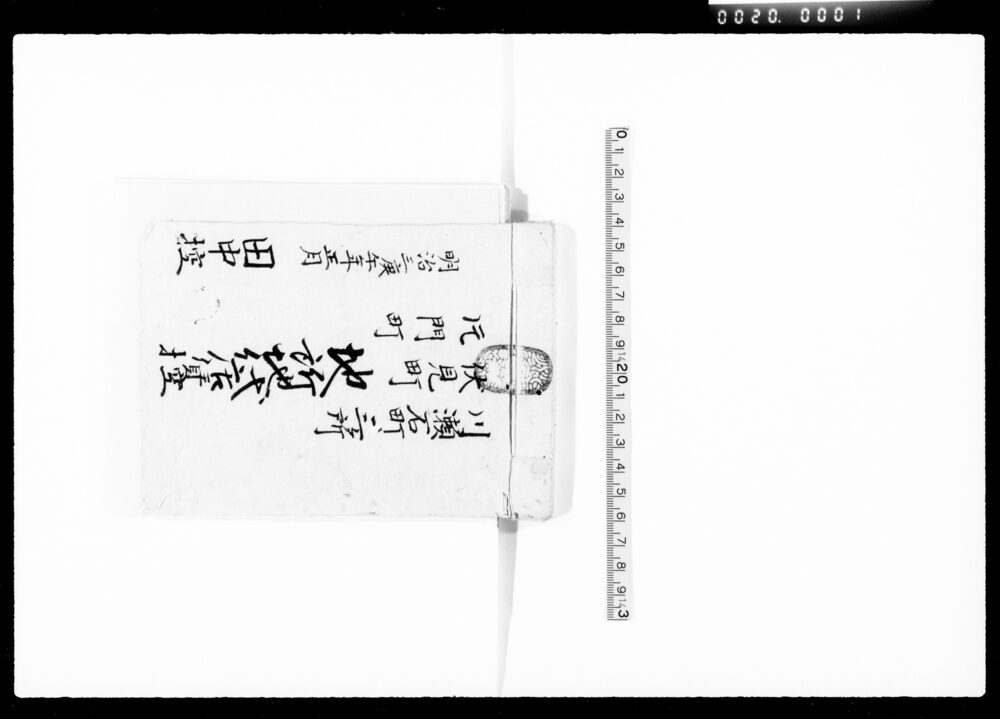 川瀬石町 三ヶ所
伏見町
門町
地所地代
明治三庚午年正月
田中控
0020. 0001
0 1 2 3 4 5 6 7 8 9 20 1 2 3 4 5 6 7 8 9 3